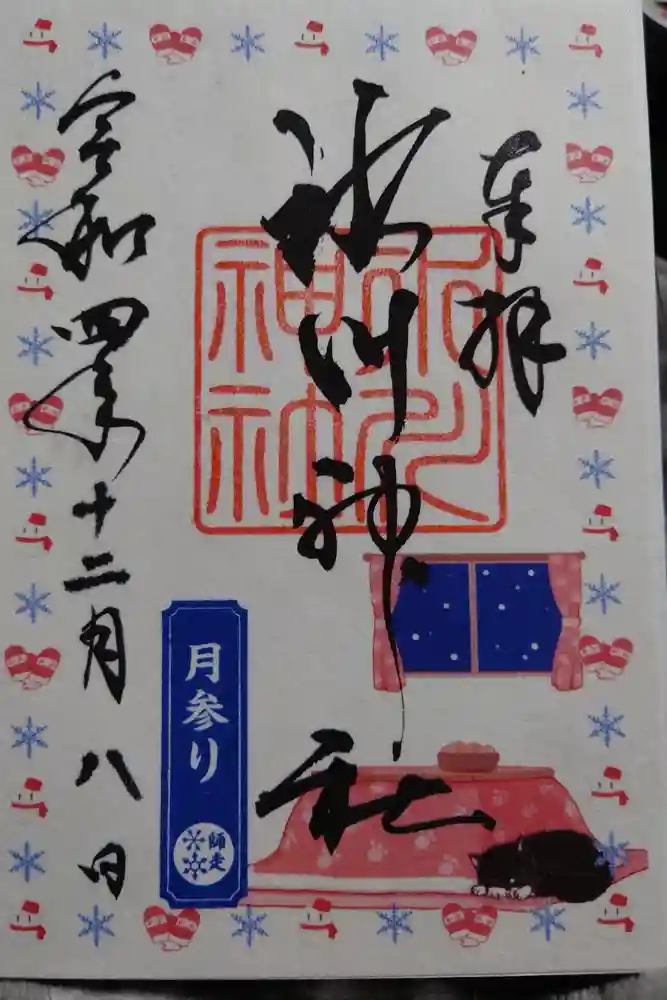 奉拝
氷川神社
氷川
神社
令和四年十二月八日
月参り
師走